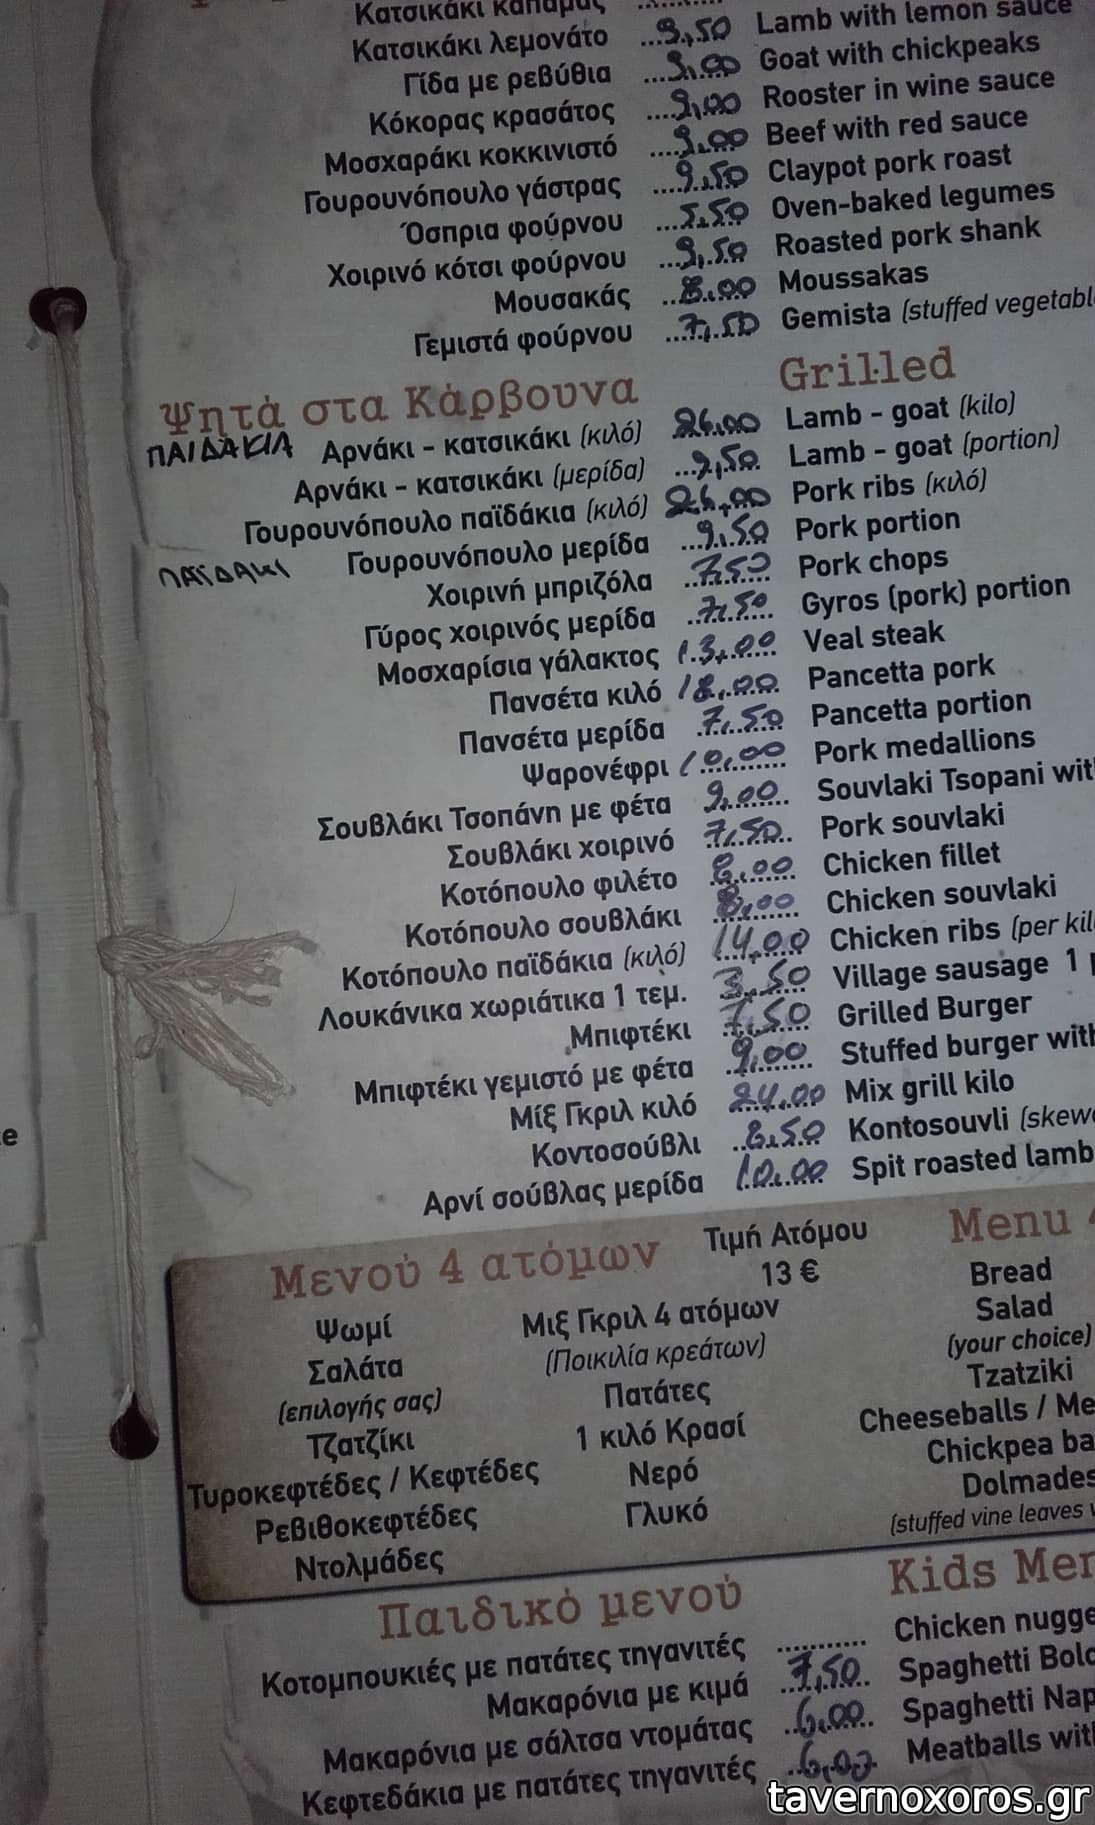 Κατσικάκι καπαμάς ..........
Κατσικάκι λεμονάτο ...9,50 Lamb with lemon sauce
Γίδα με ρεβύθια ....9,00 Goat with chickpeaks
Κόκορας κρασάτος ....9,00 Rooster in wine sauce
Μοσχαράκι κοκκινιστό ....9,00 Beef with red sauce
Γουρουνόπουλο γάστρας ....9,50 Claypot pork roast
Όσπρια φούρνου ...5,50 Oven-baked legumes
Χοιρινό κότσι φούρνου ...9,50 Roasted pork shank
Μουσακάς ..8,00 Moussakas
Γεμιστά φούρνου ...7,50 Gemista (stuffed vegetabl
Ψητά στα Κάρβουνα Grilled
ΠΑΙΔΑΚΙΑ Αρνάκι - κατσικάκι (κιλό) 26,00 Lamb - goat (kilo)
Αρνάκι - κατσικάκι (μερίδα) ...9,50 Lamb - goat (portion)
Γουρουνόπουλο παϊδάκια (κιλό) 26,00 Pork ribs (κιλό)
ΠΑΪΔΑΚΙ Γουρουνόπουλο μερίδα ...9,50 Pork portion
Χοιρινή μπριζόλα ..7,50 Pork chops
Γύρος χοιρινός μερίδα ..7,50 Gyros (pork) portion
Μοσχαρίσια γάλακτος 13,00 Veal steak
Πανσέτα κιλό 18,00 Pancetta pork
Πανσέτα μερίδα .7,50 Pancetta portion
Ψαρονέφρι 10,00 Pork medallions
Σουβλάκι Τσοπάνη με φέτα 9,00 Souvlaki Tsopani wit
Σουβλάκι χοιρινό 7,50 Pork souvlaki
Κοτόπουλο φιλέτο 8,00 Chicken fillet
Κοτόπουλο σουβλάκι 8,00 Chicken souvlaki
Κοτόπουλο παϊδάκια (κιλό) 14,00 Chicken ribs (per kil
Λουκάνικα χωριάτικα 1 τεμ. 3,50 Village sausage 1
Μπιφτέκι 7,50 Grilled Burger
Μπιφτέκι γεμιστό με φέτα 9,00 Stuffed burger wit
Μίξ Γκριλ κιλό 24,00 Mix grill kilo
Κοντοσούβλι ..8,50 Kontosouvli (skew
Αρνί σούβλας μερίδα 10,00 Spit roasted lamb
Μενού 4 ατόμων Τιμή Ατόμου Menu 4
13 €
Ψωμί Μιξ Γκριλ 4 ατόμων Bread
Σαλάτα (Ποικιλία κρεάτων) Salad
(επιλογής σας) Πατάτες (your choice)
Τζατζίκι 1 κιλό Κρασί Tzatziki
Τυροκεφτέδες / Κεφτέδες Νερό Cheeseballs / Me
Ρεβιθοκεφτέδες Γλυκό Chickpea ba
Ντολμάδες Dolmades
(stuffed vine leaves
Παιδικό μενού Kids Men
Κοτομπουκιές με πατάτες τηγανιτές ........... Chicken nugge
Μακαρόνια με κιμά 7,50 Spaghetti Bolo
Μακαρόνια με σάλτσα ντομάτας 6,00 Spaghetti Nap
Κεφτεδάκια με πατάτες τηγανιτές 6,00 Meatballs wit
tavernoxoros.gr